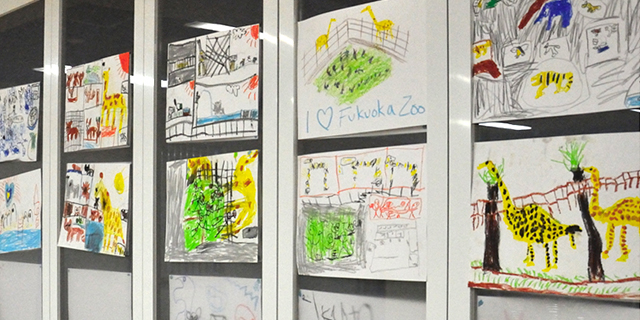 I ♡ Fukuoka Zoo